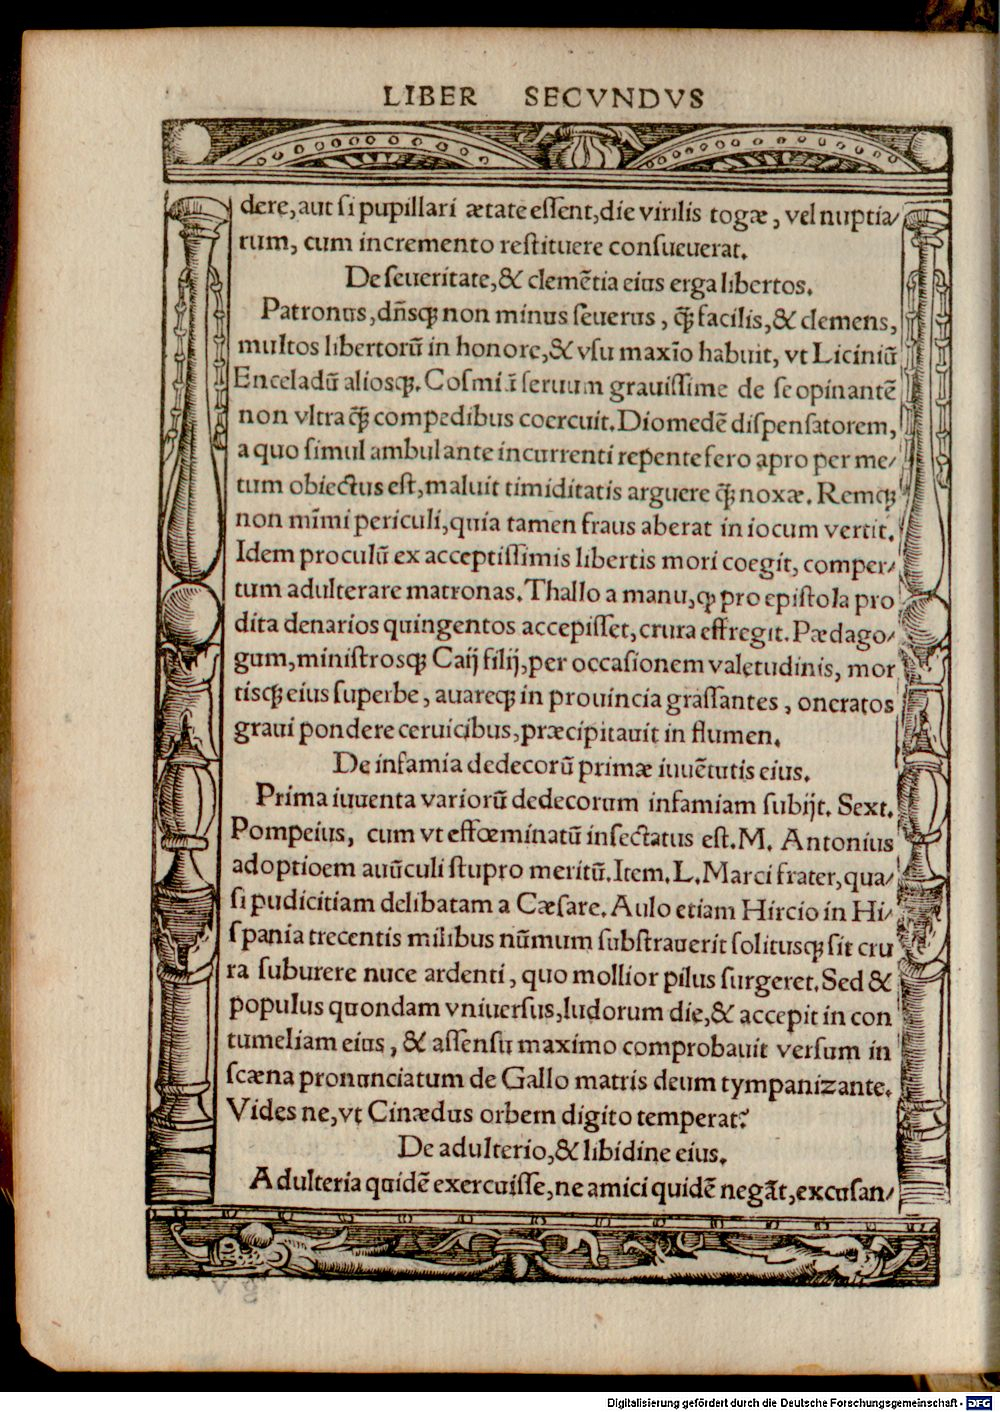 LIBER SECVNDVS
dere, aut si pupillari ætate essent, die virilis togæ, vel nuptia/
rum, cum incremento restituere consueuerat.
De seueritate, & clemētia eius erga libertos.
Patronus, dñsqꝫ non minus seuerus, q̄ꝫ facilis, & clemens,
multos libertorū in honore, & vsu maxīo habuit, vt Liciniū
Enceladū aliosqꝫ. Cosmū seruum grauissime de se opinantē
non vltra q̄ꝫ compedibus coercuit. Diomedē dispensatorem,
a quo simul ambulante incurrenti repente fero apro per me/
tum obiectus est, maluit timiditatis arguere q̄ꝫ noxæ. Remqꝫ
non mīmi periculi, quia tamen fraus aberat in iocum vertit.
Idem proculū ex acceptissimis libertis mori coegit, comper/
tum adulterare matronas. Thallo a manu, ꝙ pro epistola pro
dita denarios quingentos accepisset, crura effregit. Pædago/
gum, ministrosqꝫ Caij filij, per occasionem valetudinis, mor
tisqꝫ eius superbe, auareqꝫ in prouincia grassantes, oneratos
graui pondere ceruicibus, præcipitauit in flumen.
De infamia dedecorū primæ iuuētutis eius.
Prima iuuenta variorū dedecorum infamiam subijt. Sext.
Pompeius, cum vt effœminatū insectatus est. M. Antonius
adoptioem auūculi stupro meritū. Item. L. Marci frater, qua/
si pudicitiam delibatam a Cæsare. Aulo etiam Hircio in Hi/
spania trecentis milibus nūmum substrauerit solitusqꝫ sit cru
ra suburere nuce ardenti, quo mollior pilus surgeret. Sed &
populus quondam vniuersus, ludorum die, & accepit in con
tumeliam eius, & assensu maximo comprobauit versum in
scæna pronunciatum de Gallo matris deum tympanizante.
Vides ne, vt Cinædus orbem digito temperat?
De adulterio, & libidine eius.
Adulteria quidē exercuisse, ne amici quidē negāt, excusan/
Digitalisierung gefördert durch die Deutsche Forschungsgemeinschaft - DFG